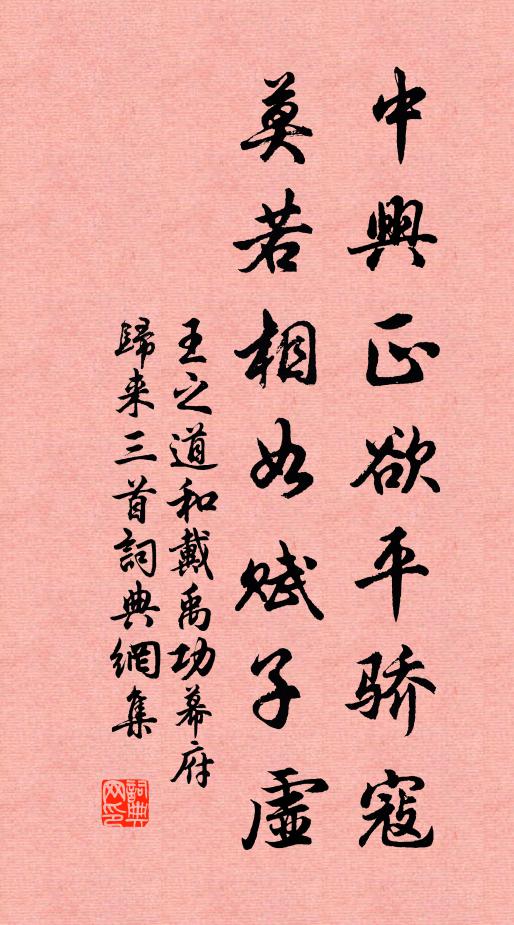 中興正欲平骄寇
莫若相如赋子虛
王之道和戴禹功幕府
歸来三首詞典網集
詞典网印